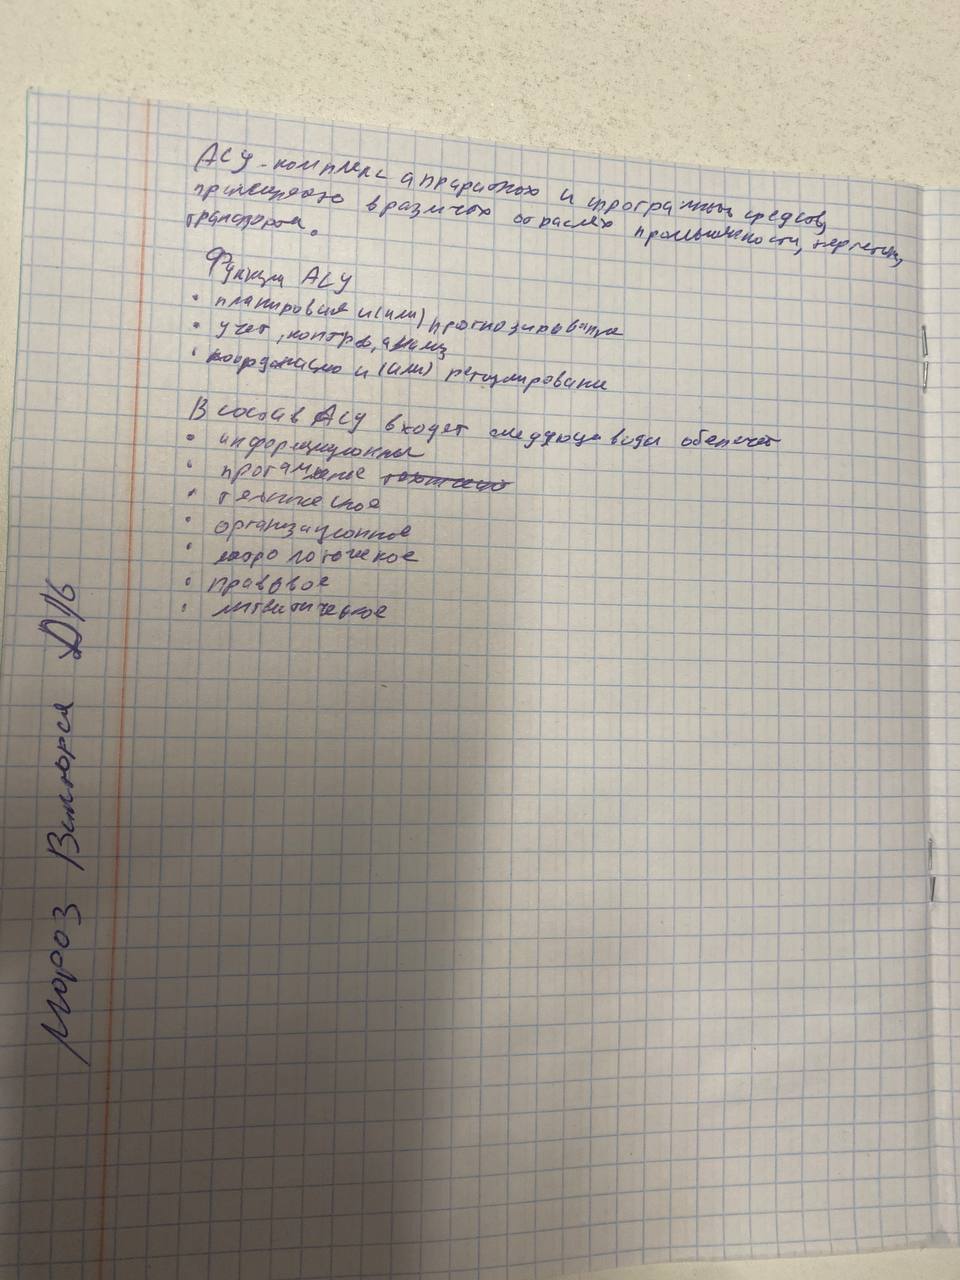 АСУ - комплекс аппаратных и програмных средств,
применяемо в различых отраслях промышлености, энергетики,
транспорта.
Функции АСУ
• планирование и(или) прогнозирование
• учет, контроль, анализ
• координацию и (или) регулировани
В состав АСУ входят следующие виды обеспечет
• информационны
• програмное
• техническое
• организационное
• метрологическое
• правовое
• лингвитическое
Мороз Виктория Д1/6